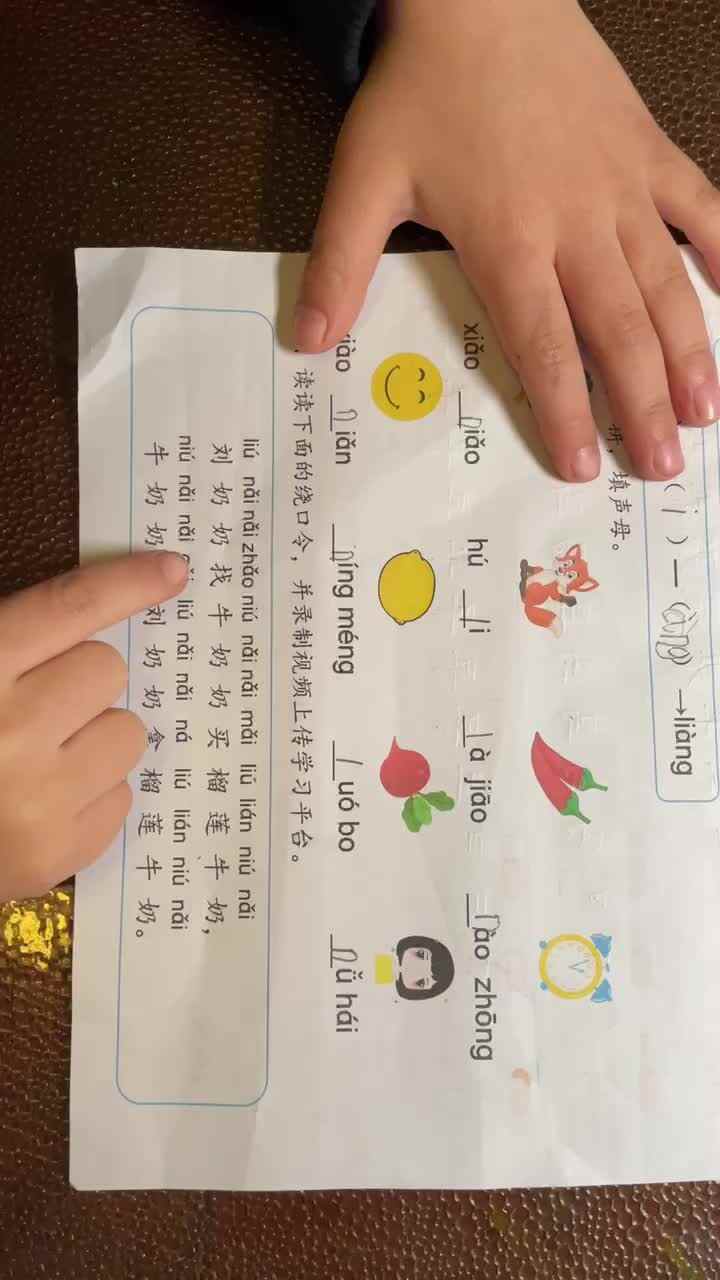 ( l ) — (àng) →liàng
拼，填声母。
xiǎo niǎo hú li là jiāo nào zhōng
iào liǎn níng méng luó bo nǚ hái
读读下面的绕口令，并录制视频上传学习平台。
liú nǎi nǎi zhǎo niú nǎi nǎi mǎi liú lián niú nǎi
刘奶奶找牛奶奶买榴莲牛奶，
niú nǎi nǎi liú nǎi nǎi ná liú lián niú nǎi
牛奶奶刘奶奶拿榴莲牛奶。